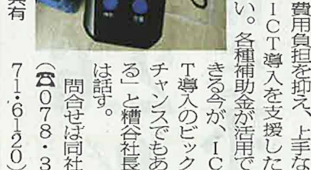 費用負担を抑え、上手な
ICT導入を支援した
い。各種補助金が活用で
きる今が、IC
T導入のビック
チャンスでもあ
る」と糟谷社長
は話す。
問合せは同社
(☎078・3
71・6120)
共有